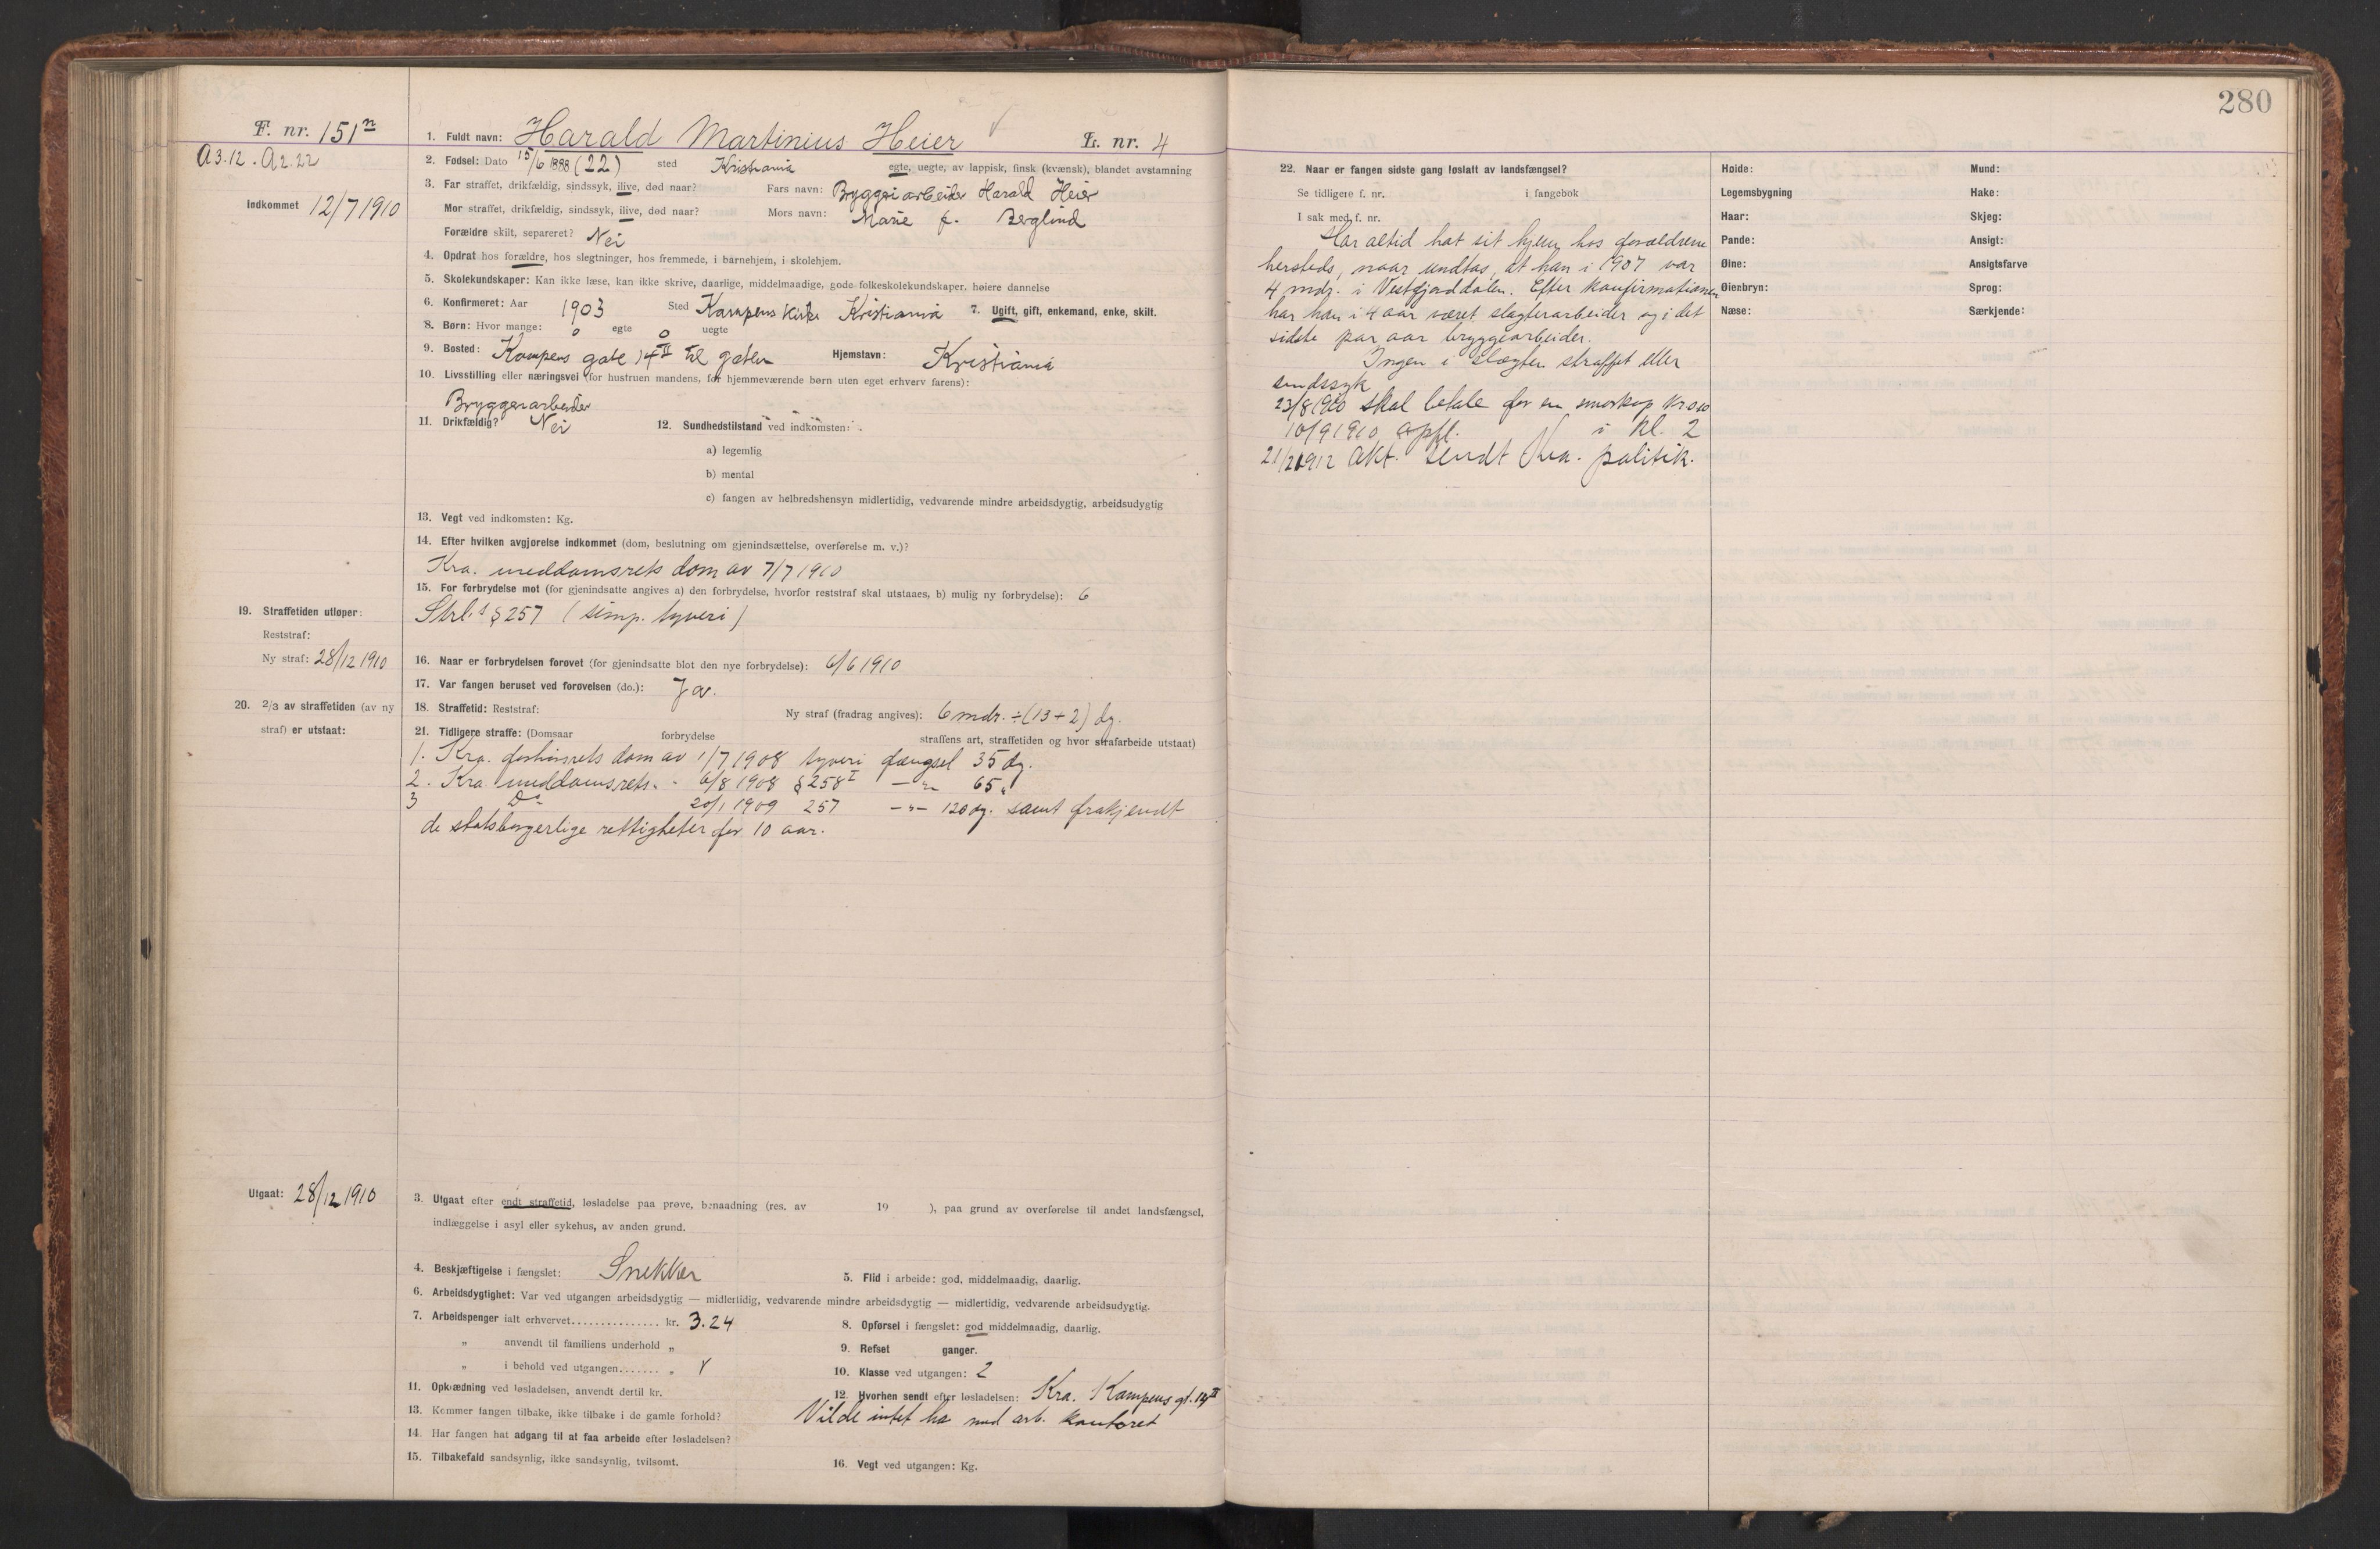 280
F. nr. 151n
A3.12. A2.22
Indkommet 12/7 1910
1. Fuldt navn: Harald Martinius Heier L. nr. 4
2. Fødsel: Dato 15/6 1888 (22) sted Kristiania egte, uegte, av lappisk, finsk (kvænsk), blandet avstamning
3. Far straffet, drikfældig, sindssyk, ilive, død naar? Fars navn: Bryggeriarbeider Harald Heier
Mor straffet, drikfældig, sindssyk, ilive, død naar? Mors navn: Marie f. Berglind
Forældre skilt, separeret? Nei
4. Opdrat hos forældre, hos slegtninger, hos fremmede, i barnehjem, i skolehjem.
5. Skolekundskaper: Kan ikke læse, kan ikke skrive, daarlige, middelmaadige, gode folkeskolekundskaper, høiere dannelse
6. Konfirmeret: Aar 1903 Sted Kampens kirke Kristiania 7. Ugift, gift, enkemand, enke, skilt.
8. Børn: Hvor mange: 0 egte 0 uegte
9. Bosted: Kampens gate 14 II til gaten Hjemstavn: Kristiania
10. Livsstilling eller næringsvei (for hustruen mandens, for hjemmeværende børn uten eget erhverv farens):
Bryggerarbeider
11. Drikfældig? Nei 12. Sundhedstilstand ved indkomsten:
a) legemlig
b) mental
c) fangen av helbredshensyn midlertidig, vedvarende mindre arbeidsdygtig, arbeidsudygtig
13. Vegt ved indkomsten: Kg.
14. Efter hvilken avgjørelse indkommet (dom, beslutning om gjenindsættelse, overførelse m. v.)?
Kra. meddomsrets dom av 7/7 1910
15. For forbrydelse mot (for gjenindsatte angives a) den forbrydelse, hvorfor reststraf skal utstaaes, b) mulig ny forbrydelse): 6
Strl.s § 257 (simp. tyveri)
19. Straffetiden utløper:
Reststraf:
Ny straf: 28/12 1910
16. Naar er forbrydelsen forøvet (for gjenindsatte blot den nye forbrydelse): 6/6 1910
17. Var fangen beruset ved forøvelsen (do.): Ja.
20. 2/3 av straffetiden (av ny
straf) er utstaat:
18. Straffetid: Reststraf: Ny straf (fradrag angives): 6 mdr. ÷ (13 + 2) dg.
21. Tidligere straffe: (Domsaar forbrydelse straffens art, straffetiden og hvor strafarbeide utstaat)
1. Kra. forhørsrets dom av 1/7 1908 tyveri fængsel 35 dg.
2. Kra meddomsrets " 6/8 1908 § 258 I — " — 65 "
3 Do 20/1 1909 257 — " — 120 dg. samt frakjendt
de statsborgerlige rettigheter for 10 aar.
Utgaat: 28/12 1910
3. Utgaat efter endt straffetid, løsladelse paa prøve, benaadning (res. av 19 ), paa grund av overførelse til andet landsfængsel,
indlæggelse i asyl eller sykehus, av anden grund.
4. Beskjæftigelse i fængslet: Snekker 5. Flid i arbeide: god, middelmaadig, daarlig.
6. Arbeidsdygtighet: Var ved utgangen arbeidsdygtig — midlertidig, vedvarende mindre arbeidsdygtig — midlertidig, vedvarende arbeidsudygtig.
7. Arbeidspenger ialt erhvervet............... kr. 3.24 8. Opførsel i fængslet: god middelmaadig, daarlig.
" anvendt til familiens underhold " 9. Refset ganger.
" i behold ved utgangen....... " 10. Klasse ved utgangen: 2
11. Opklædning ved løsladelsen, anvendt dertil kr. 12. Hvorhen sendt efter løsladelsen: Kra. Kampens gt. 14 II
13. Kommer fangen tilbake, ikke tilbake i de gamle forhold? Vilde intet ha med arb. kontoret
14. Har fangen hat adgang til at faa arbeide efter løsladelsen?
15. Tilbakefald sandsynlig, ikke sandsynlig, tvilsomt. 16. Vegt ved utgangen: Kg.
22. Naar er fangen sidste gang løslatt av landsfængsel?
Se tidligere f. nr. i fangebok
I sak med f. nr.
Har altid hat sit hjem hos forældrene
hersteds, naar undtas, at han i 1907 var
4 mdr. i Vestfjorddalen. Efter konfirmationen
har han i 4 aar været slagterarbeider og i det
sidste par aar bryggearbeider.
Ingen i slægten straffet eller
sindssyk
23/8 1910 skal betale for en smørkop kr 0.10
10/9 1910 opfl. i kl. 2
21/2 1912 Akt. sendt Kra. politik.
Høide: Mund:
Legemsbygning Hake:
Haar: Skjeg:
Pande: Ansigt:
Øine: Ansigtsfarve
Øienbryn: Sprog:
Næse: Særkjende: